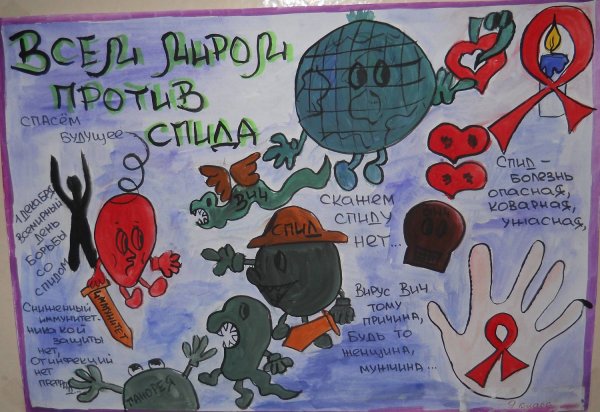 ВСЕМ МИРОМ
ПРОТИВ
СПИДА
СПАСЁМ
БУДУЩЕЕ
1 ДЕКАБРЯ
ВСЕМИРНЫЙ
ДЕНЬ
БОРЬБЫ
СО
СПИДОМ
ВИЧ
СПИД
СКАЖЕМ
СПИДУ
НЕТ...
СПИД –
БОЛЕЗНЬ
ОПАСНАЯ,
КОВАРНАЯ,
УЖАСНАЯ,
ВИЧ
ИММУНИТЕТ
СНИЖЕННЫЙ
ИММУНИТЕТ-
НИКАКОЙ
ЗАЩИТЫ
НЕТ,
ОТ ИНФЕКЦИЙ
НЕТ
ВИРУС ВИЧ
ТОМУ
ПРИЧИНА,
БУДЬ ТО
ЖЕНЩИНА,
МУЖЧИНА...
ГАНОРЕЯ